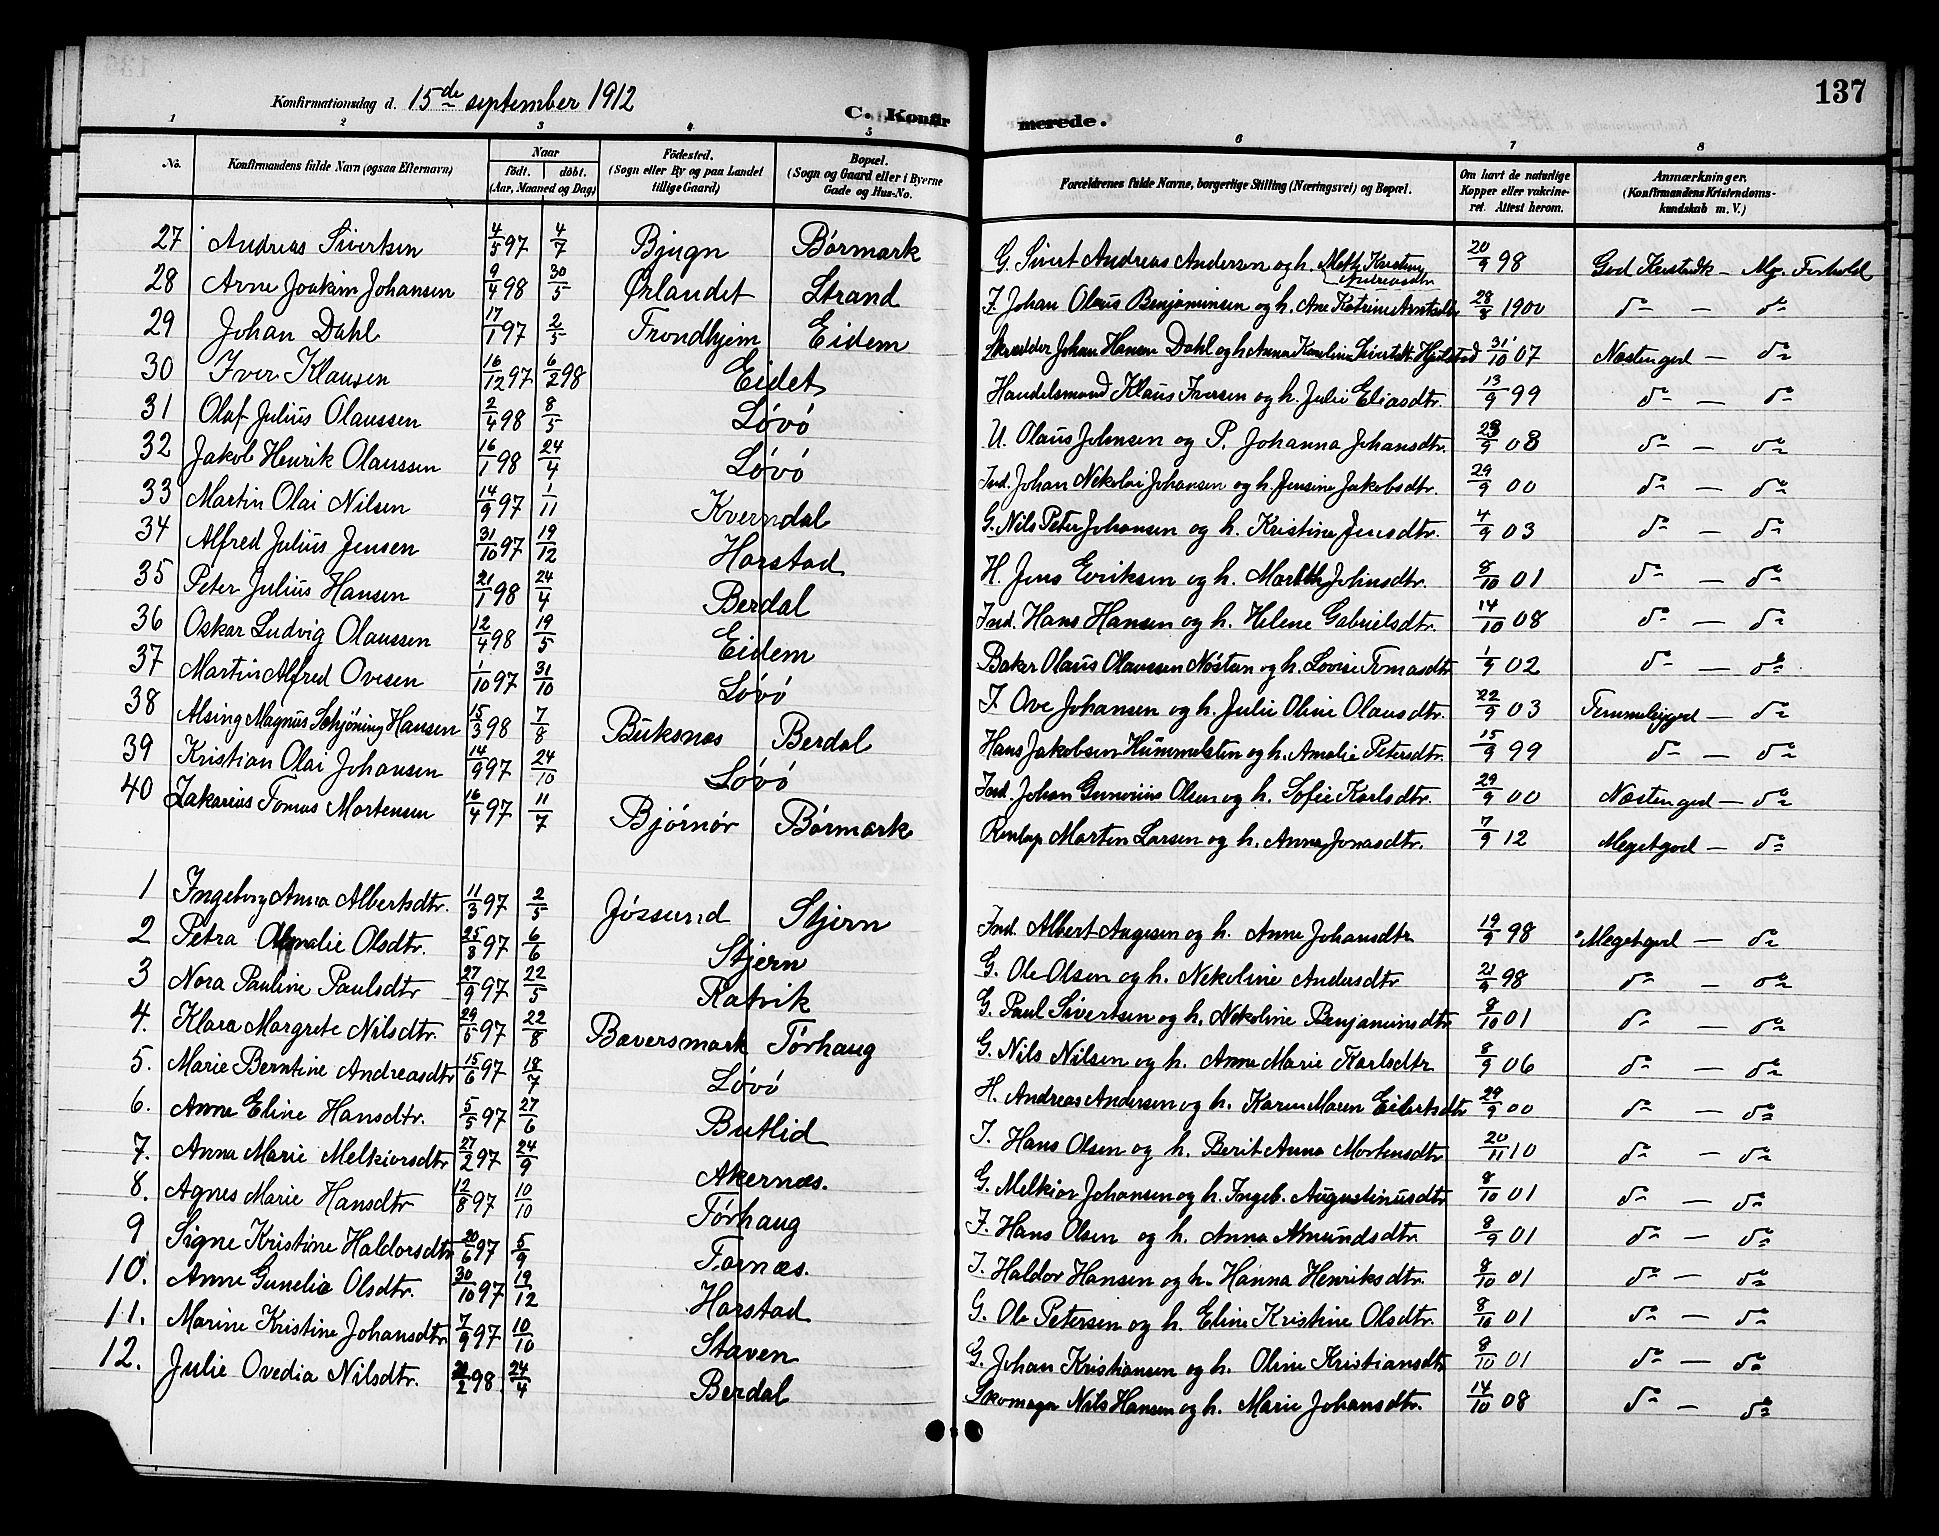 137
Konfirmationsdag d. 15de september 1912
C. Konfirmerede.
1 2 3 4 5 6 7 8
No. Konfirmandens fulde Navn (ogsaa Efternavn) Naar födt. döbt. (Aar, Maaned og Dag) Födested. (Sogn eller By og paa Landet tillige Gaard) Bopæl. (Sogn og Gaard eller i Byerne Gade og Hus-No. Forældrenes fulde Navne, borgerlige Stilling (Næringsvei) og Bopæl. Om havt de naturlige Kopper eller vakcineret. Attest herom. Anmærkninger. (Konfirmandens Kristendomskundskab m. V.)
27 Andreas Sivertsen 4/5 97 4/7 Bjugn Börmark G. Sivert Andreas Andersen og h. Meth. Andreasdtr 20/9 98 God Kristdk - Mg. Forhold
28 Arne Joakim Johansen 9/4 98 30/5 Ørlandet Strand F. Johan Olaus Benjaminsen og h. Ane Katrine Arntsdtr 28/8 1900 do - do
29 Johan Dahl 17/1 97 2/5 Trondhjem Eidem Skrædder Johan Hansen Dahl og h Anna Karolina Sivertdt. Hjulstad 31/10 07 Næstengod - do
30 Iver Klausen 16/12 97 6/2 98 Eidet Handelsmand Klaus Iversen og h. Julie Eliasdtr. 13/9 99 do - do
31 Olaf Julius Olaussen 2/4 98 8/5 Løvö U. Olaus Johnsen og P. Johanna Johansdtr. 23/9 08 do - do
32 Jakob Henrik Olaussen 16/1 98 24/4 Løvö Ind. Johan Nekolai Johansen og h. Jensine Jakobsdtr. 29/9 00 do - do
33 Martin Olai Nilsen 14/9 97 1/11 Kverndal G. Nils Peter Johansen og h. Kristine Jensdtr. 4/9 03 do - do
34 Alfred Julius Jensen 31/10 97 19/12 Harstad H. Jens Eriksen og h. Marith Johnsdtr. 8/10 01 do - do
35 Peter Julius Hansen 21/1 98 24/4 Berdal Ind. Hans Hansen og h. Helene Gabrielsdtr. 14/10 08 do - do
36 Oskar Ludvig Olaussen 12/4 98 19/5 Eidem Baker Olaus Olaussen Nøsten og h. Lovise Tomasdtr 1/9 02 do - do
37 Martin Alfred Ovesen 1/10 97 31/10 Løvö I. Ove Johansen og h. Julie Oline Olausdtr. 22/9 03 Temmeliggod - do
38 Alsing Magnus Schjöning Hansen 15/3 98 7/8 Buksnæs Berdal Hans Jakobsen Hummelsten og h. Amalie Petersdtr. 15/9 99 do - do
39 Kristian Olai Johansen 14/9 97 24/10 Løvö Ind. Johan Gunerius Olsen og h. Sofie Karlsdtr. 29/9 00 Næstengod - do
40 Zakarias Tomas Mortensen 16/4 97 11/7 Bjórnór Börmark Morten Larsen og h. Anna Jonasdtr. 7/9 12 Megetgod - do
1 Ingeborg Anna Albertsdtr. 11/3 97 2/5 Jössund Stjern Ind. Albert Angesen og h. Anne Johansdtr 19/9 98 Megetgod - do
2 Petra Amalie Olsdtr. 25/8 97 6/6 Stjern G. Ole Olsen og h. Nekoline Andersdtr 21/9 98 do - do
3 Nora Pauline Paulsdtr 27/9 97 22/5 Ratvik G. Paul Sivertsen og h. Nekoline Benjaminsdtr 8/10 01 do - do
4. Klara Margrete Nilsdtr. 29/5 97 22/8 Bæversmark Törhaug G. Nils Nilsen og h. Anne Marie Karlsdtr 8/9 06 do - do
5. Marie Berntine Andreasdtr 15/6 97 18/7 Løvö H. Andreas Andersen og h. Karen Maren Eilertsdtr 29/9 00 do - do
6. Anne Eline Hansdtr. 5/5 97 27/6 Butlid I. Hans Olsen og h. Berit Anna Mortensdtr 20/11 10 do - do
7. Anna Marie Melkiorsdtr 27/2 97 24/9 Akernæs. G. Melkior Johansen og h. Ingeb. Augustinusdtr 8/10 01 do - do
8. Agnes Marie Hansdtr 12/8 97 10/10 Törhaug F. Hans Olsen og h. Anna Amundsdtr 8/9 01 do - do
9 Signe Kristine Haldorsdtr 20/6 97 5/9 Tornæs. I. Haldor Hansen og h. Hanna Henriksdtr. 8/10 01 do - do
10. Anne Gunelie Olsdtr. 30/10 97 19/12 Harstad G. Ole Petersen og h. Eline Kristine Olsdtr. 8/10 01 do - do
11. Marine Kristine Johansdtr 7/9 97 10/10 Staven G. Johan Kristiansen og h. Oline Kristiansdtr 8/10 01 do - do
12. Julie Ovedia Nilsdtr. 2/2 98 24/4 Berdal Skomager Nils Hansen og h. Marie Johansdtr. 14/10 08 do - do